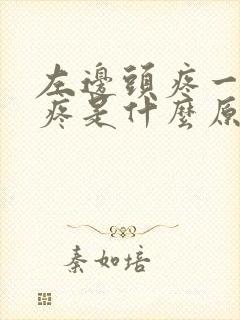 左邊頭疼一
疼是什麼原
秦如培